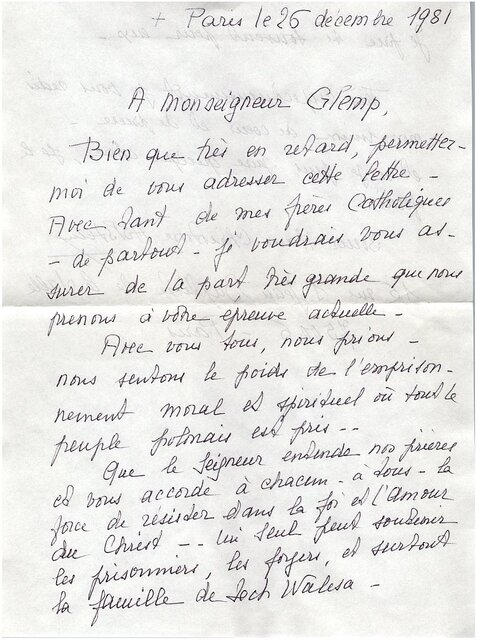 + Paris le 26 décembre 1981
A Monseigneur Glemp,
Bien que très en retard, permettez-
moi de vous adresser cette lettre -
Avec tant de mes frères Catholiques
- de partout - je voudrais vous as-
surer de la part très grande que nous
prenons à votre épreuve actuelle -
Avec vous tous, nous prions -
nous sentons le poids de l'emprison-
nement moral et spirituel où tout le
peuple polonais est pris --
Que le Seigneur entende nos prières
et vous accorde à chacun - à tous - la
force de résister dans la foi et l'Amour
du Christ -- Lui seul peut soutenir
les prisonniers, les foyers, et surtout
la famille de Lech Walesa -